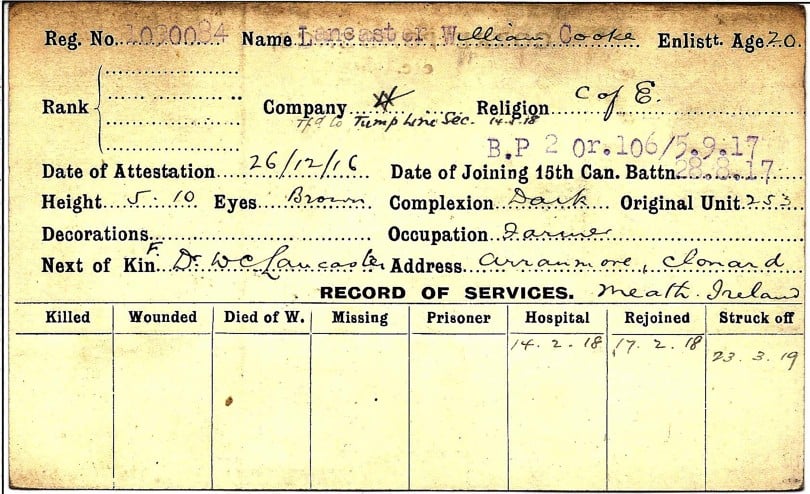 Reg. No. 1030084 Name Lancaster William Cooke Enlistt. Age 20.
Rank Company Religion C of E.
Tfd to Tump Line Sec. 14.8.18
B.P 2 Or. 106/5.9.17
Date of Attestation 26/12/16 Date of Joining 15th Can. Battn. 28.8.17
Height 5. 10 Eyes Brown Complexion Dark Original Unit 253
Decorations Occupation Farmer
Next of Kin F. Dr. W C Lancaster Address Arranmore, Clonard
RECORD OF SERVICES. Meath. Ireland
Killed Wounded Died of W. Missing Prisoner Hospital Rejoined Struck off
14. 2. 18 17. 2. 18 23. 3. 19